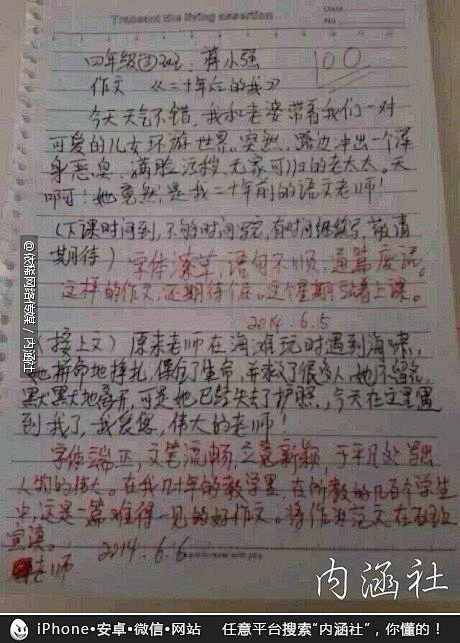 Transact the living assertion
Date
No
四年级③班 蒋小强
100
作文 《二十年后的我》
今天天气不错,我和老婆带着我们一对
可爱的儿女环游世界。突然,路边冲出一个浑
身恶臭、满脸污秽、无家可归的老太太。天
啊!她竟然是我二十年前的语文老师!
(下课时间到,不够时间写完,有时间继续写,敬请
期待)字体潦草,语句不顺,通篇废话。
这样的作文,还期待个屁。这个星期站着上课。
2014.6.5
(接上文)原来老师在海滩玩时遇到海啸,
她拼命地挣扎,保住了生命,并救了很多人,她不留名,
默默地离开,可是她已经失去了护照,今天在这里遇
到我了,我爱您,伟大的老师!
字体端正,文笔流畅,立意新颖,于平凡处写出
人物的伟大。在我几十年的教学里,在所教的几百个学生
中,这是一篇难得一见的好作文。将作为范文在班
宣读。 2014.6.6
老师
@冷笑网络传媒 / 内涵社
内涵社
iPhone•安卓•微信•网站 任意平台搜索“内涵社”,你懂的!